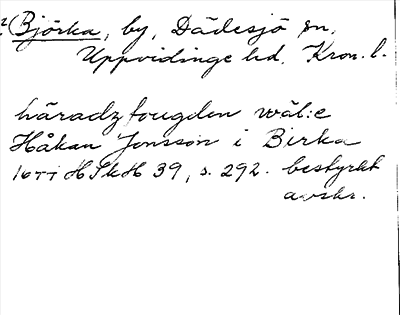 Björka, by, Dädesjö sn,
Uppvidinge hd, Kron. l.
häradzfougden wäl:e
Håkan Jonsson i Birka
HSkH 39, s. 292. bestyrkt
avskr.